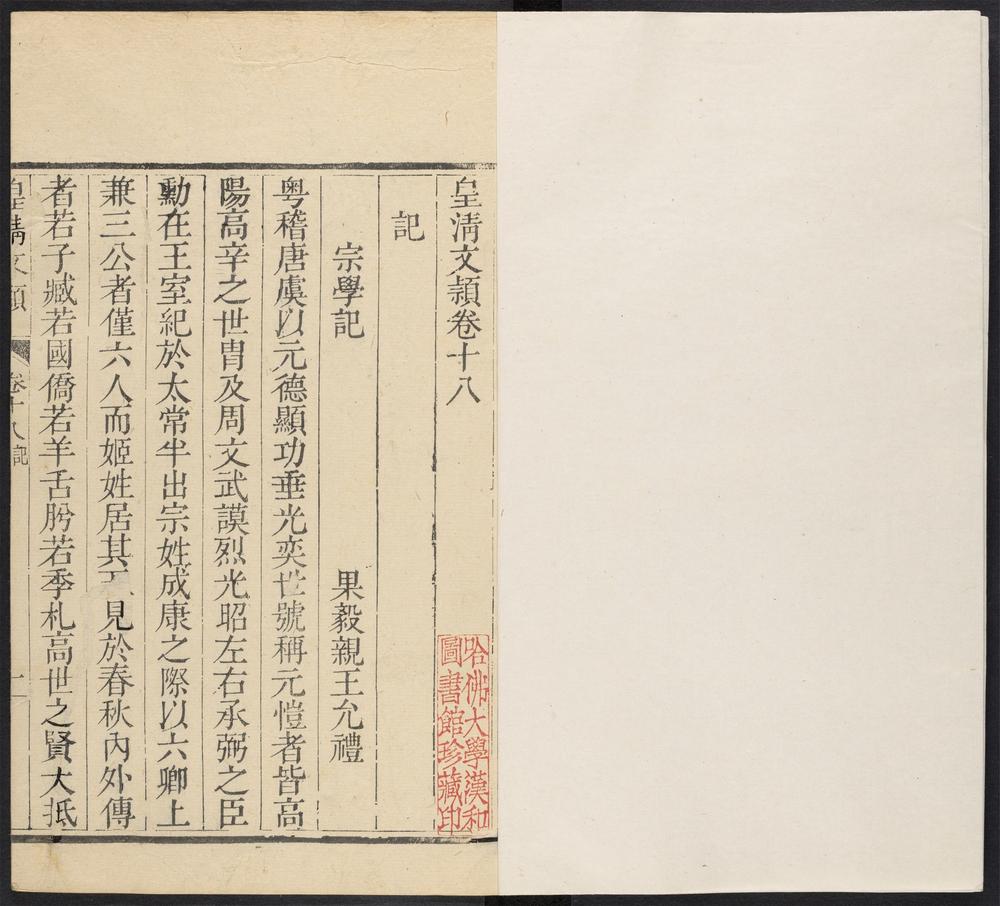 皇淸文頴卷十八
記
宗學記 果毅親王允禮
粤稽唐虞以元德顯功垂光奕世號稱元愷者皆高
陽高辛之世胄及周文武謨烈光昭左右承弼之臣
勳在王室紀於太常半出宗姓成康之際以六卿上
兼三公者僅六人而姬姓居其 見於春秋內外傳
者若子臧若國僑若羊舌肸若季札高世之賢大抵
皇淸文頴 卷十八 記 一
哈佛大學漢和
圖書館珍藏印